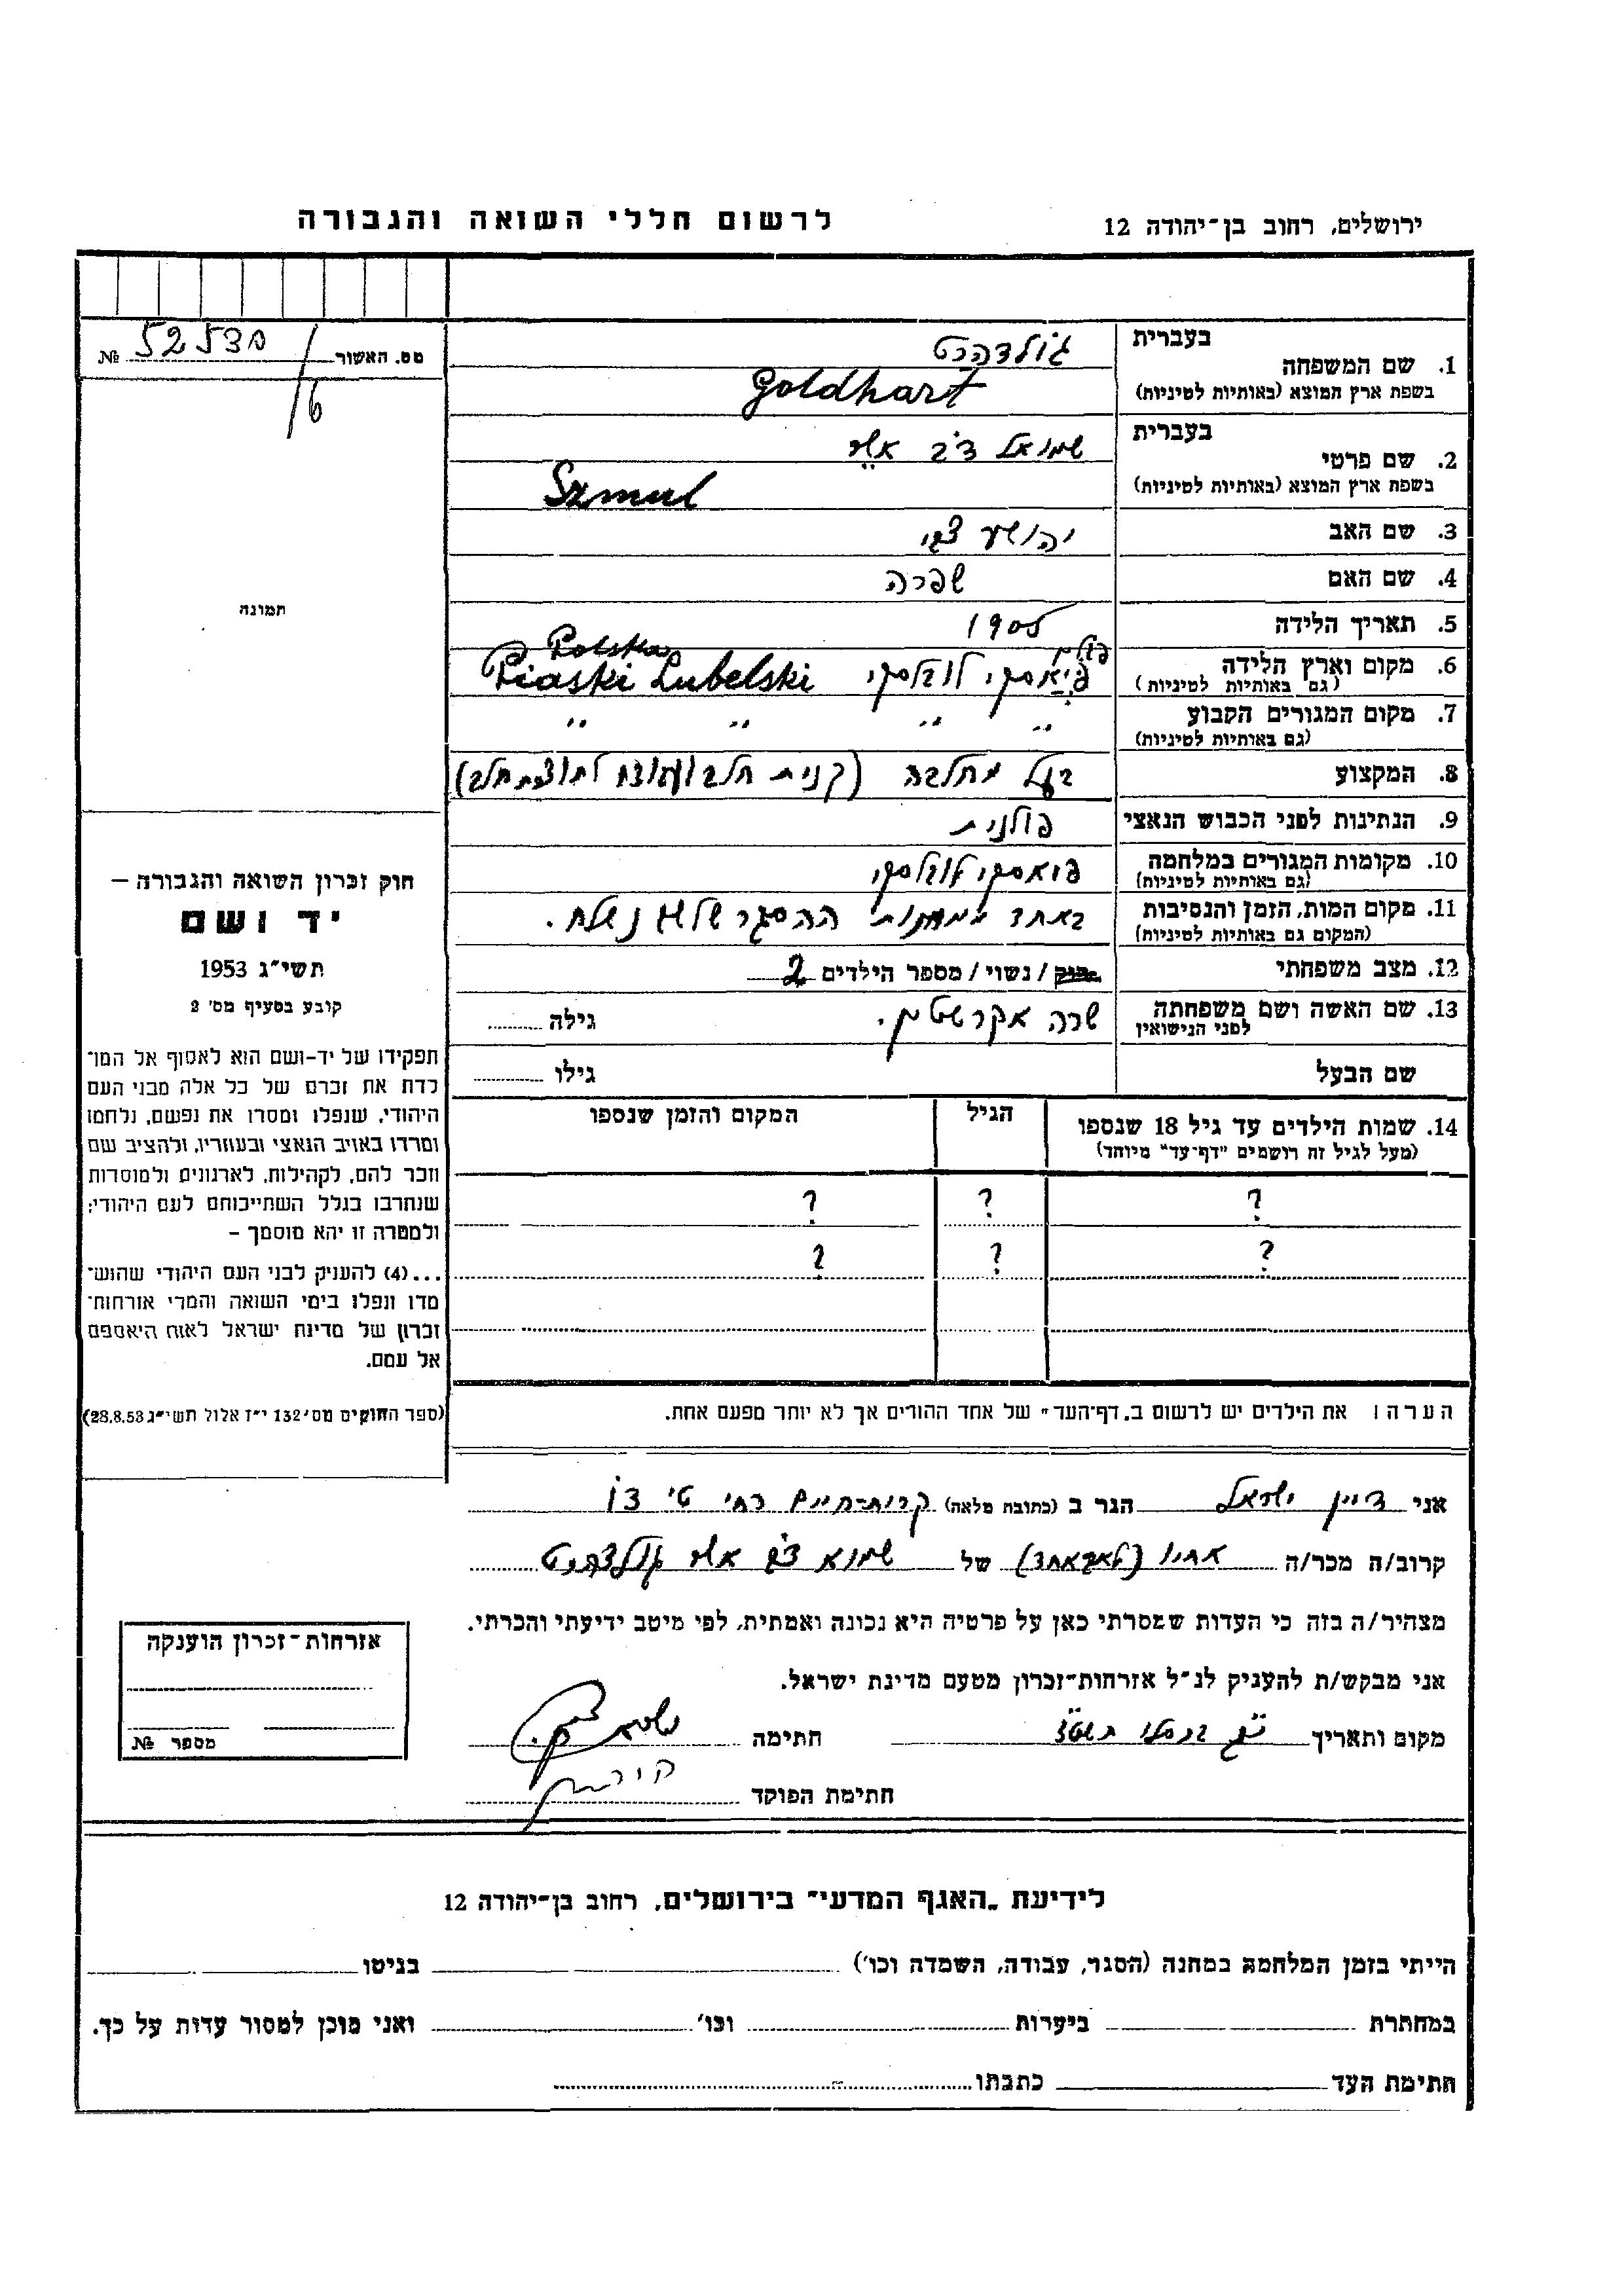 ירושלים, רחוב בן־יהודה 12
לרשום חללי השואה והגבורה
מס. האשור № 5253
16
תמונה
חוק זכרון השואה והגבורה –
יד ושם
תשי״ג 1953
קובע בסעיף מס׳ 2
תפקידו של יד-ושם הוא לאסוף אל המו־
לדת את זכרם של כל אלה מבני העם
היהודי, שנפלו ומסרו את נפשם, נלחמו
ומרדו באויב הנאצי ובעוזריו, ולהציב שם
וזכר להם, לקהילות, לארגונים ולמוסדות
שנחרבו בגלל השתייכותם לעם היהודי;
ולמטרה זו יהא מוסמך –
...(4) להעניק לבני העם היהודי שהוש־
מדו ונפלו בימי השואה והמרי אזרחות־
זכרון של מדינת ישראל לאות היאספם
אל עמם.
(ספר החוקים מס׳ 132 י״ז אלול תשי״ג 28.8.53)
בעברית גולדהרט
1. שם המשפחה
בשפת ארץ המוצא (באותיות לטיניות) Goldhart
בעברית שמואל דב אשר
2. שם פרטי
בשפת ארץ המוצא (באותיות לטיניות) Szmul
3. שם האב יהושע צבי
4. שם האם שפרה
5. תאריך הלידה 1905
6. מקום וארץ הלידה פיאסקי לובלסקי פולין Piaski Lubelski Polska
(גם באותיות לטיניות)
7. מקום המגורים הקבוע ״ ״ ״ ״
(גם באותיות לטיניות)
8. המקצוע בעל מחלבה (קנית חלב ותוצרת חלב)
9. הנתינות לפני הכבוש הנאצי פולנית
10. מקומות המגורים במלחמה פיאסקי לובלסקי
(גם באותיות לטיניות)
11. מקום המות, הזמן והנסיבות באחד ממחנות ההסגר שלשם נשלח.
(המקום גם באותיות לטיניות)
12. מצב משפחתי רוק / נשוי / מספר הילדים 2
13. שם האשה ושם משפחתה שרה אקרשטין. גילה
לפני הנישואין
שם הבעל גילו
14. שמות הילדים עד גיל 18 שנספו הגיל המקום והזמן שנספו
(מעל לגיל זה רושמים "דף־עד" מיוחד)
? ? ?
? ? ?
הערה: את הילדים יש לרשום ב„דף־העד״ של אחד ההורים אך לא יותר מפעם אחת.
אני דיין ישראל הגר ב (כתובת מלאה) קרית-חיים רח׳ ט׳
קרוב/ה מכר/ה אחיו של שמואל דב אשר גולדהרט
מצהיר/ה בזה כי העדות שמסרתי כאן על פרטיה היא נכונה ואמתית, לפי מיטב ידיעתי והכרתי.
אני מבקש/ת להעניק לנ״ל אזרחות־זכרון מטעם מדינת ישראל.
מקום ותאריך בכסלו חתימה
חתימת הפוקד
אזרחות־זכרון הוענקה
מספר №
לידיעת „האגף המדעי״ בירושלים, רחוב בן־יהודה 12
הייתי בזמן המלחמה במחנה (הסגר, עבודה, השמדה וכו׳) בגיטו
במחתרת ביערות וכו׳ ואני מוכן למסור עדות על כך.
חתימת העד כתבתו